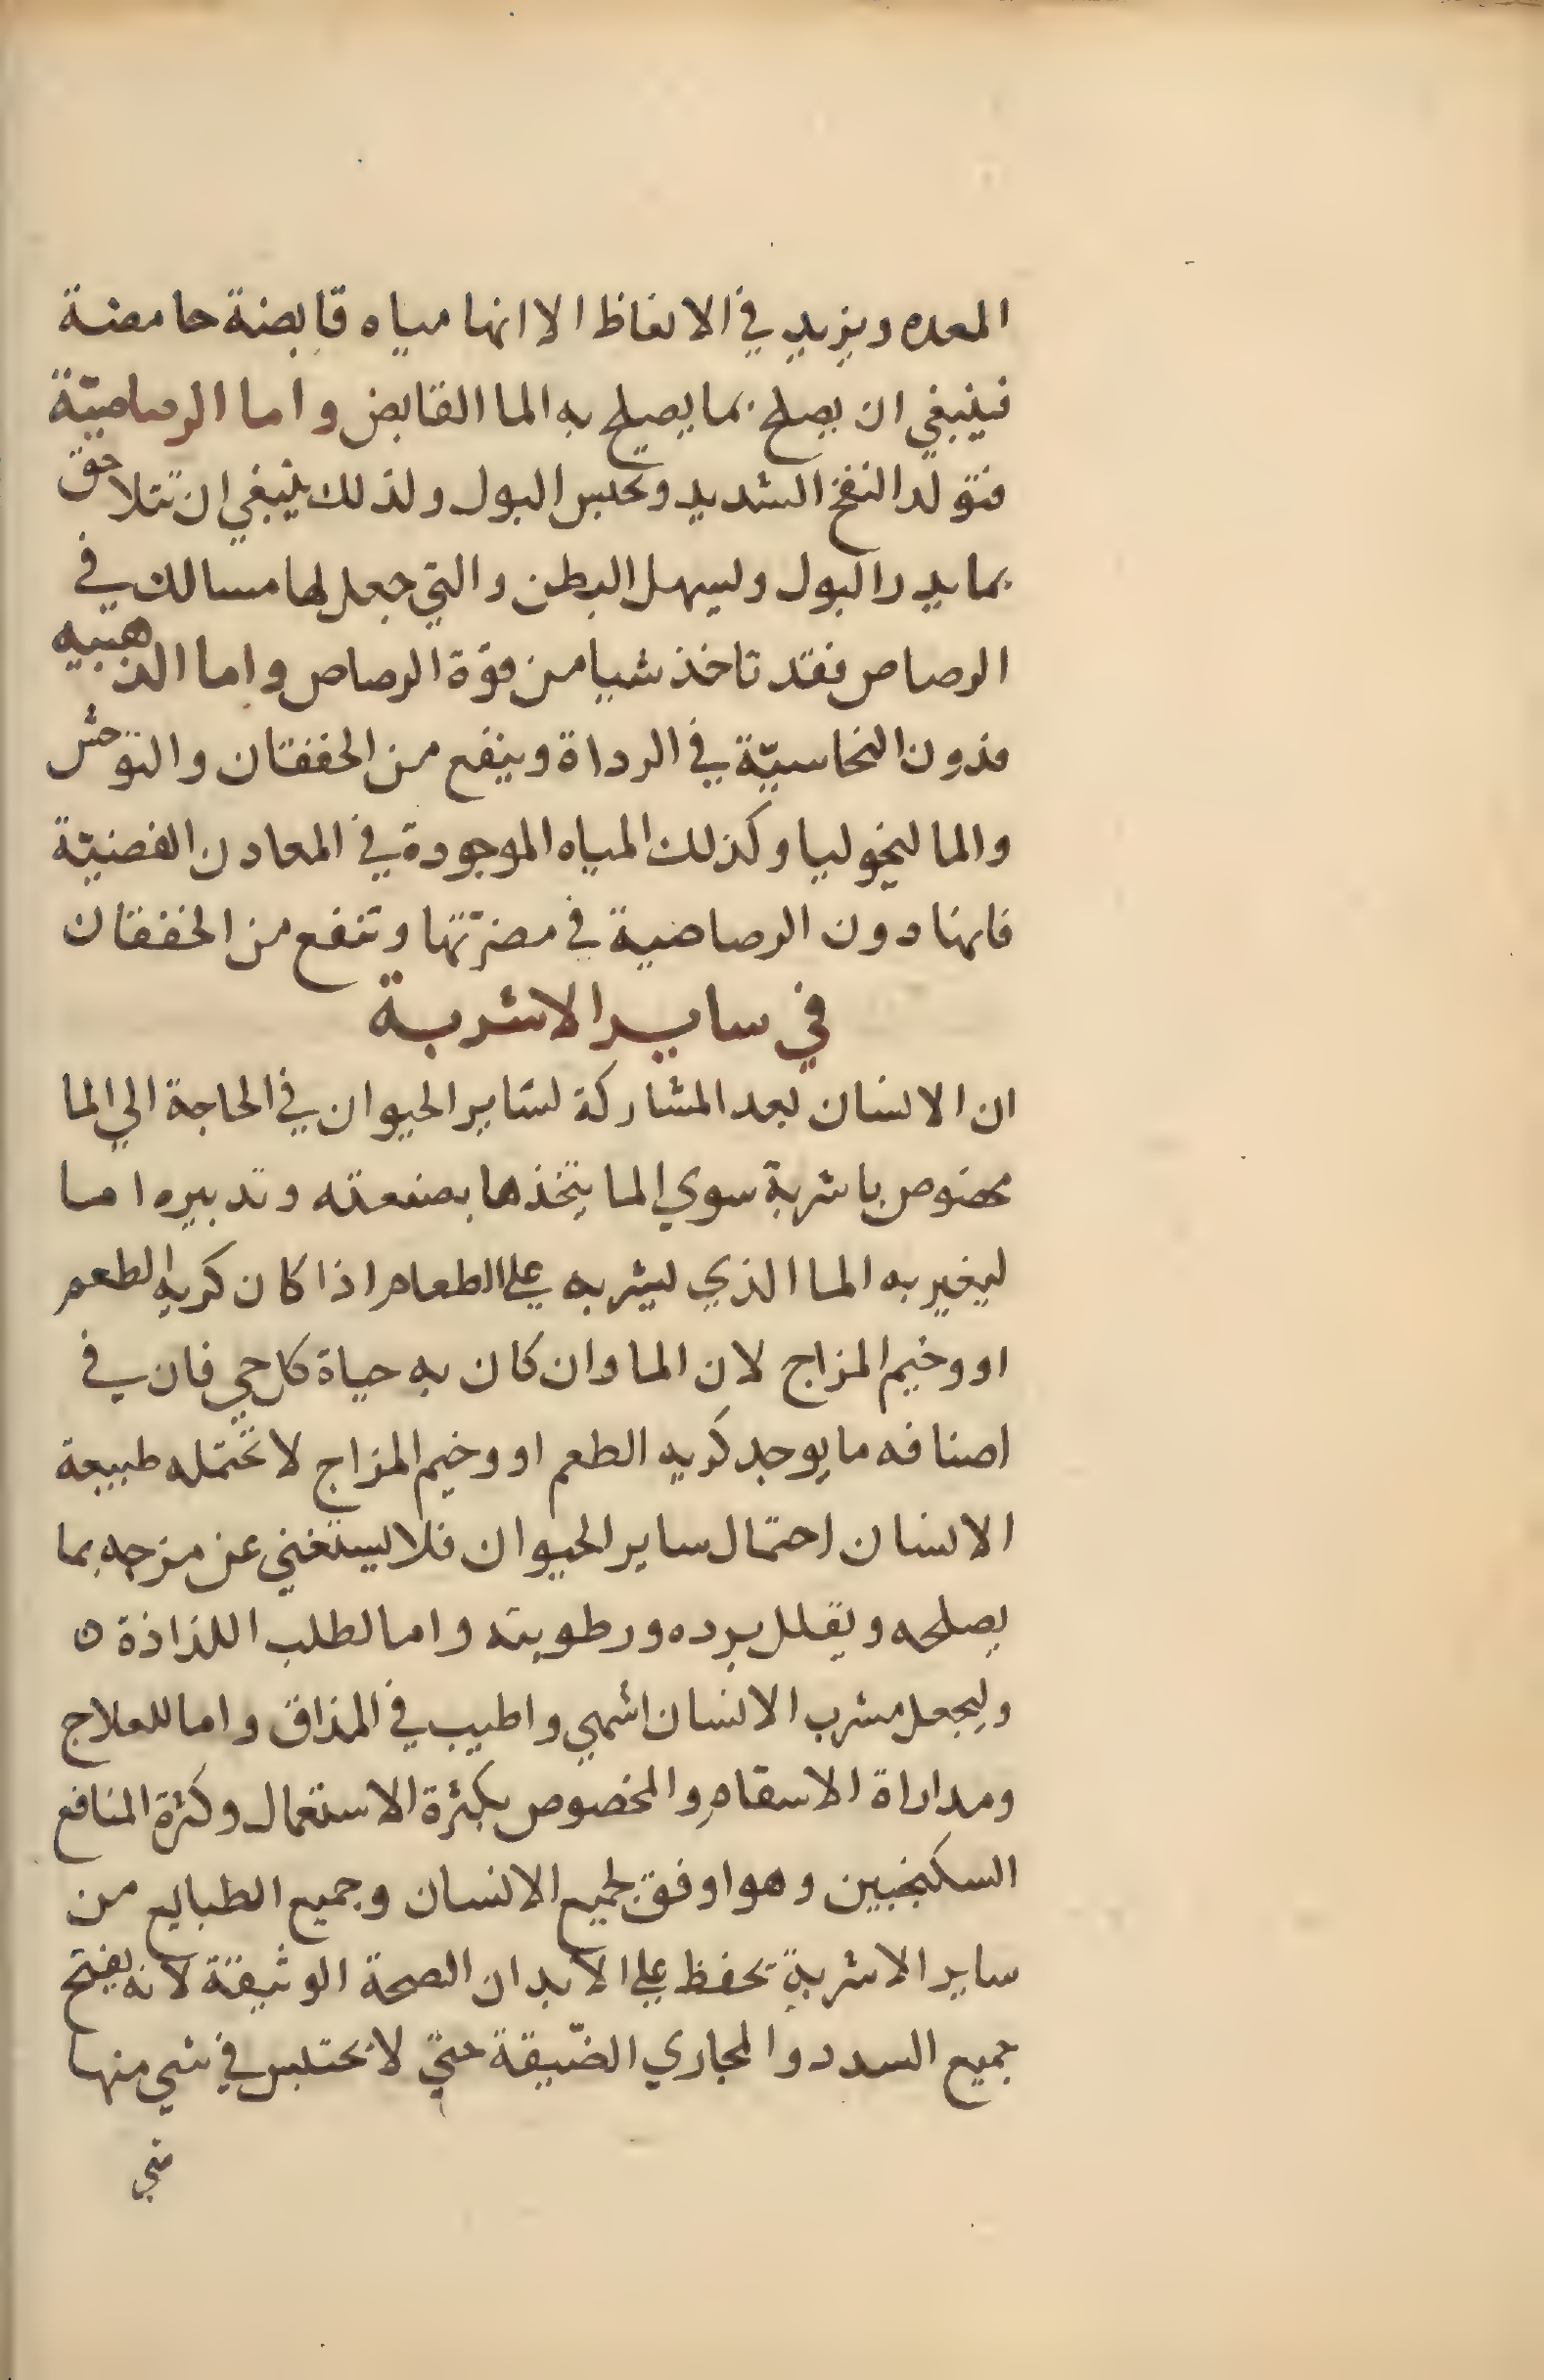 المعده ويزيد في الانعاظ الا انها مياه قابضة حامضة
فينبغي ان يصلح بما يصلح به الما القابض واما الرصاصيّة
فتولد النفخ الشديد وتحبس البول ولذلك ينبغي ان تتلاحق
بما يدر البول ويسهل البطن والتي جعل لها مسالك في
الرصاص فقد تاخذ شيا من قوّة الرصاص واما الذهبيه
فدون النحاسيّة في الرداة وينفع من الخفقان والتوحّش
والماليخوليا وكذلك المياه الموجودة في المعادن الفضيّة
فانها دون الرصاصية في مضرّتها وتنفع من الخفقان
في ساير الاشربة
ان الانسان بعد المشاركة لساير الحيوان في الحاجة الي الما
مخصوص باشربة سوي الما يتخذها بصنعته وتدبيره اما
ليغير به الما الذي يشربه علي الطعام اذا كان كريه الطعم
او وخيم المزاج لان الما وان كان به حياة كل حي فان في
اصنافه ما يوجد كريه الطعم او وخيم المزاج لا تحتمله طبيعة
الانسان احتمال ساير الحيوان فلا يستغني عن مزجه بما
يصلحه ويقلل برده ورطوبته واما لطلب اللذاذة
وليجعل مشرب الانسان اشهي واطيب في المذاق واما للعلاج
ومداراة الاسقام والمخصوص بكثرة الاستعمال وكثرة المنافع
السكنجبين وهو اوفق لجميع الانسان وجميع الطبايع من
ساير الاشربة يحفظ علي الابدان الصحة الوثيقة لانه يفتح
جميع السدد والمجاري الضّيقة حتي لا يحتبس في شي منها